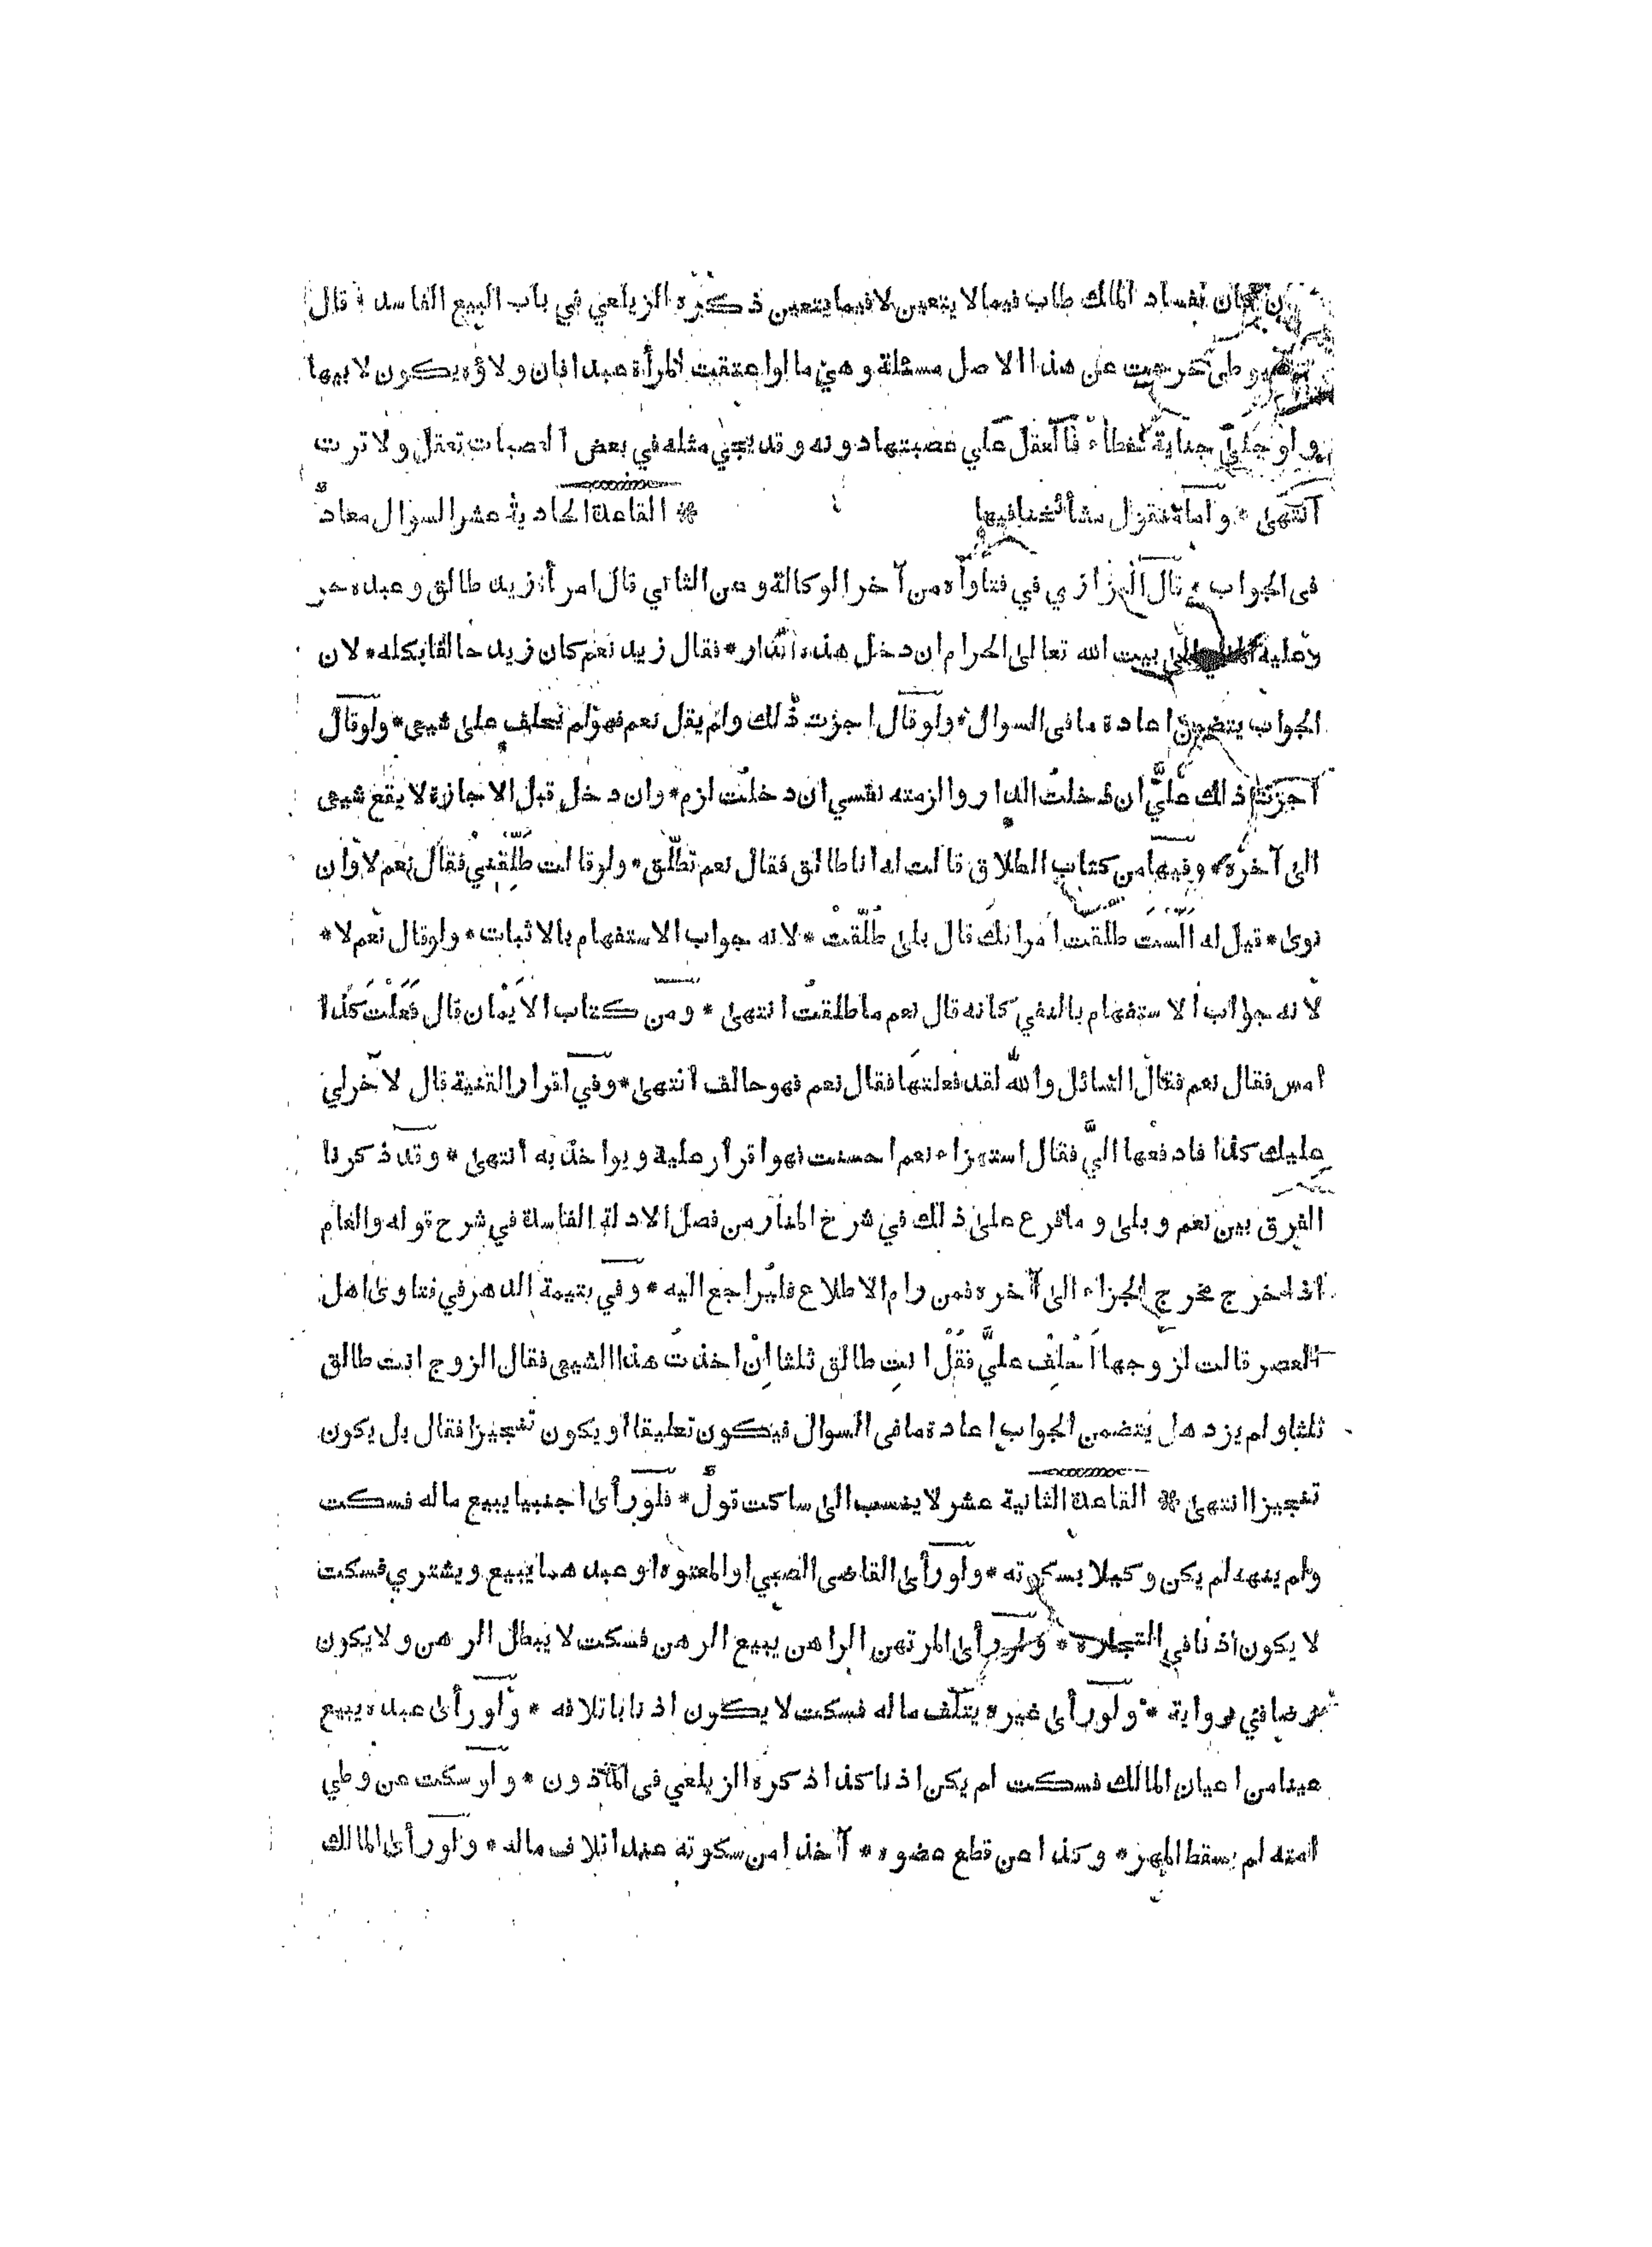 ن كان لفساد الملك طاب فيما لا يتعين لا فيما يتعين ذكره الزيلعي في باب البيع الفاسد * قال
السيوطي خرجت عن هذا الاصل مسئلة وهي ما لو اعتقت المرأة عبدا فان ولاؤه يكون لابنها
ولو جنى جناية خطأء فالعقل على عصبتها دونه وقد يجئ مثله في بعض العصبات تعقل ولا ترث
انتهى * واما نقول مشائخنا فيها * القاعدة الحادية عشر السوال معاد
في الجواب * قال البزازي في فتاواه من آخر الوكالة وعن الثاني قال امرأة زيد طالق وعبده حر
وعليه المشي الى بيت الله تعالى الحرام ان دخل هذه الدار * فقال زيد نعم كان زيد حالفا بكله * لان
الجواب يتضمن اعادة ما في السوال * ولو قال اجزت ذلك ولم يقل نعم فهو لم يحلف على شيئ * ولو قال
اجزت ذلك عليَّ ان دخلت الدار والزمته نفسي ان دخلت لزم * وان دخل قبل الاجازة لا يقع شيئ
الى آخره * وفيها من كتاب الطلاق قالت له انا طالق فقال نعم تطلّق * ولو قالت طَلِّقني فقال نعم لا وان
نوى * قيل له الست طلّقت امرأتك قال بلى طُلّقت * لانه جواب الاستفهام بالاثبات * ولو قال نعم لا *
لانه جواب الاستفهام بالنفي كانه قال نعم ما طلقت انتهى * ومن كتاب الايمان قال فعلت كذا
امس فقال نعم فقال السائل والله لقد فعلتها فقال نعم فهو حالف انتهى * وفي اقرار القنية قال لآخر لي
عليك كذا فادفعها اليَّ فقال استهزاء نعم احسنت فهو اقرار عليه ويواخذ به انتهى * وقد ذكرنا
الفرق بين نعم وبلى وما فرع على ذلك في شرح المنار من فصل الادلة الفاسدة في شرح قوله والعام
اذا خرج مخرج الجزاء الى آخره فمن رام الاطلاع فليراجع اليه * وفي يتيمة الدهر في فتاوى اهل
العصر قالت لزوجها احلف عليَّ فقل انتِ طالق ثلثا اِن اخذت هذا الشيئ فقال الزوج انت طالق
ثلثا ولم يزد هل يتضمن الجواب اعادة ما في السوال فيكون تعليقا او يكون تنجيزا فقال بل يكون
تنجيزا انتهى * القاعدة الثانية عشر لا ينسب الى ساكت قول * فلو رأى اجنبيا يبيع ماله فسكت
ولم ينهه لم يكن وكيلا بسكوته * ولو رأى القاضي الصبي او المعتوه او عبدهما يبيع ويشتري فسكت
لا يكون اذنا في التجارة * ولو رأى المرتهن الراهن يبيع الرهن فسكت لا يبطل الرهن ولا يكون
رضا في رواية * ولو رأى غيره يتلف ماله فسكت لا يكون اذنا باتلافه * ولو رأى عبده يبيع
عينا من اعيان المالك فسكت لم يكن اذنا كذا ذكره الزيلعي في المأذون * ولو سكت عن وطي
امته لم يسقط المهر * وكذا عن قطع عضوه * آخذا من سكوته عند اتلاف ماله * ولو رأى المالك